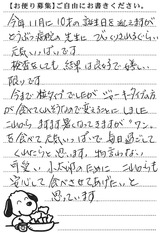 【お便り募集】ご自由にお書きください。
今年11月に10才の誕生日を迎えますが
どうぶつ病院の先生に びっくりされるぐらい
元気いっぱいです。
検査をしても 結果は良くて 嬉しい
限りです
今まで 他
が食べてくれそうなので変えることにしました
これから ますます暑くなってきますが ワン
も食べて 元気いっぱいで 毎日過ごして
くれたらと思います。 物言わない
可愛い 小太郎のために これからも
安心して 食べさせてあげたいと
思っています